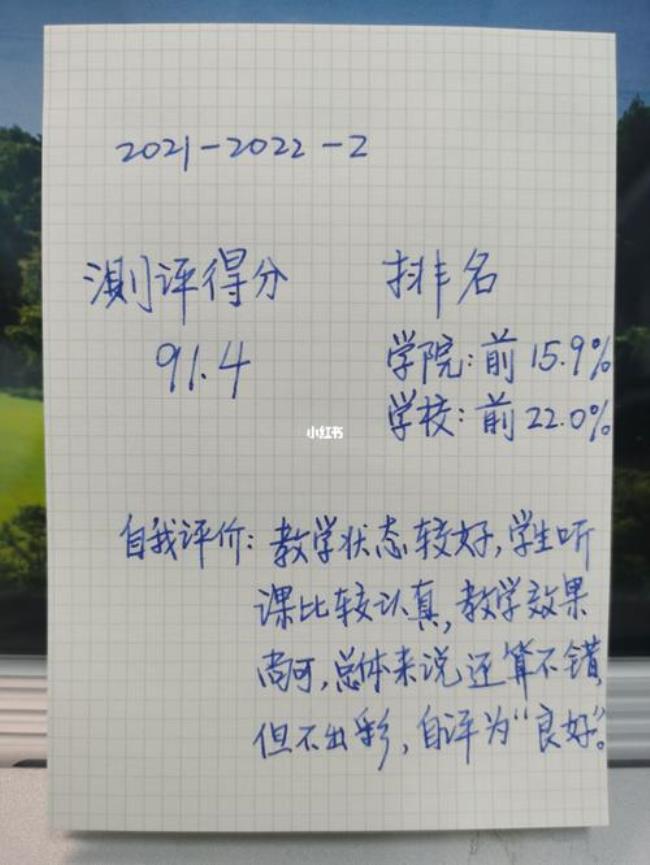 2021-2022-2
测评得分 排名
91.4 学院:前15.9%
学校:前22.0%
小红书
自我评价:教学状态较好,学生听
课比较认真,教学效果
尚可,总体来说还算不错,
但不出彩,自评为“良好”。